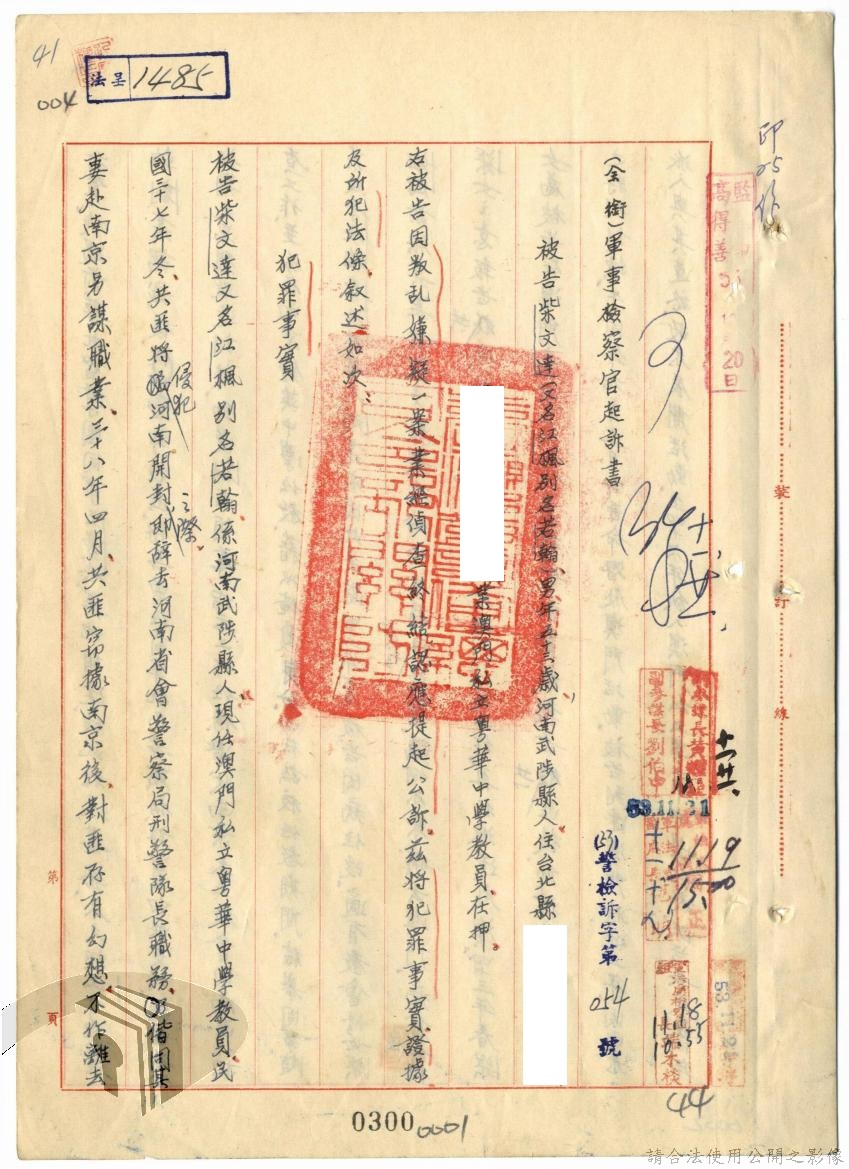 41
004
法呈 1485
印25份
監印
高得善
20日
裝
訂
線
(全銜)軍事檢察官起訴書
(53)警檢訴字第054號
被告柴文達(又名江楓別名若翰)男年五十三歲河南武陟縣人住台北縣
業澳門私立粵華中學教員在押
右被告因叛乱嫌疑一案業經偵查終結認應提起公訴茲將犯罪事實證據
及所犯法條敘述如次:
犯罪事實
被告柴文達又名江楓別名若翰係河南武陟縣人現任澳門私立粵華中學教員民
國三十七年冬、共匪將侵犯河南開封之際即辞去河南省會警察局刑警隊長職務、偕同其
妻赴南京另謀職業、三十八年四月共匪窃據南京後、對匪存有幻想、不作離去
53.11.21
11.19
15.00
11.18
10.55
44
第 頁
0300
0001
請合法使用公開之影像